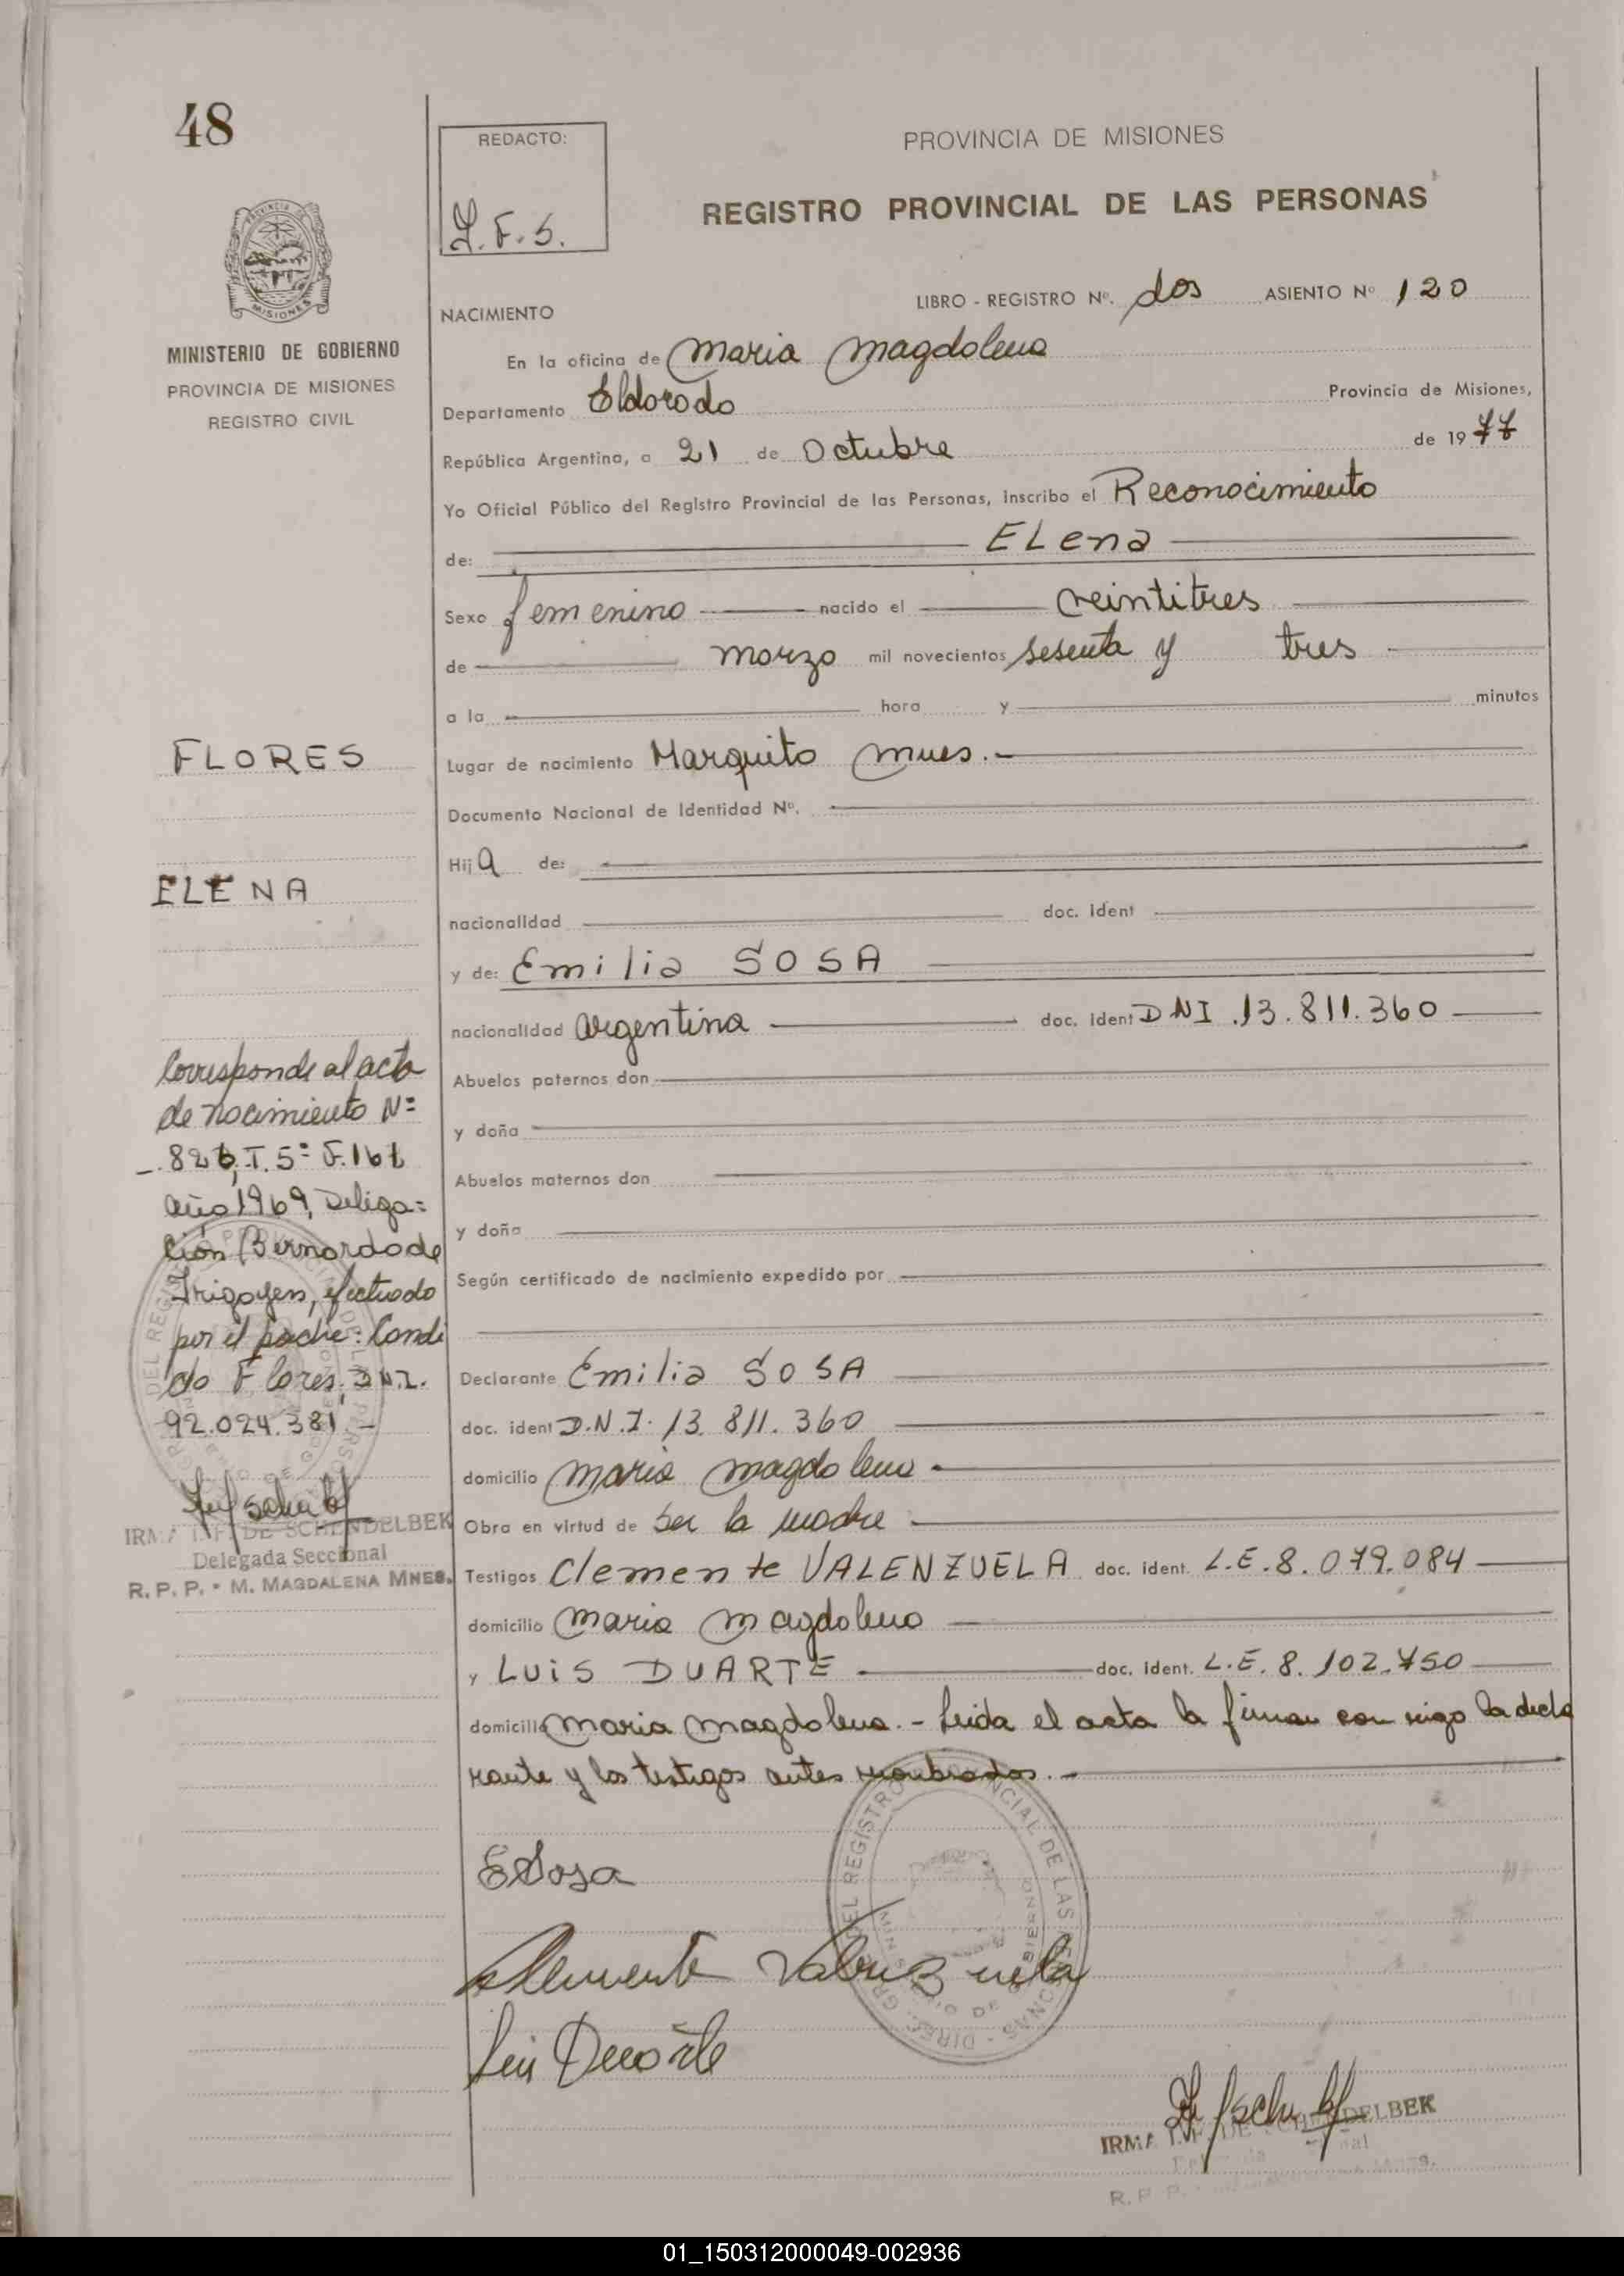 48
REDACTO:
PROVINCIA DE MISIONES
REGISTRO PROVINCIAL DE LAS PERSONAS
MISIONES
MINISTERIO DE GOBIERNO
PROVINCIA DE MISIONES
REGISTRO CIVIL
LIBRO - REGISTRO Nº. dos ASIENTO Nº 120
NACIMIENTO
En la oficina de Maria Magdalena
Departamento Eldorado Provincia de Misiones,
República Argentina, a 21 de Octubre de 1977
Yo Oficial Público del Registro Provincial de las Personas, inscribo el Reconocimiento
de: ELena
Sexo femenino nacido el veintitres
de marzo mil novecientos sesenta y tres
a la hora y minutos
FLORES
Lugar de nacimiento Marquito mnes.-
Documento Nacional de Identidad Nº.
Hija de:
ELENA
nacionalidad doc. ident
y de: Emilia SOSA
nacionalidad argentina doc. ident DNI .13.811.360
Corresponde al acta
de nacimiento Nº
T. 5º
año 1969, Delega=
ción Bernardo de
Irigoyen, efectuado
por el padre: Candi
do Flores. D.N.I.
92.024.381 -
IRMA DE SCHENDELBEK
Delegada Seccional
R. P. P. - M. MAGDALENA MNES.
Abuelos paternos don
y doña
Abuelos maternos don
y doña
Según certificado de nacimiento expedido por
Declarante Emilia SOSA
doc. ident D.N.I. 13.811.360
domicilio Maria Magdalena
Obra en virtud de ser la madre
Testigos Clemente VALENZUELA doc. ident. L.E.8.079.084
domicilio Maria Magdalena
y LUIS DUARTE doc. ident. L.E. 8.102.750
domicilio Maria Magdalena.- Leida el acta la firman con migo la decla
rante y los testigos antes nombrados.-
ESosa
Clemente Valenzuela
Luis Duarte
IRMA I.F. DE SCHENDELBEK
R. P. P.
01_150312000049-002936